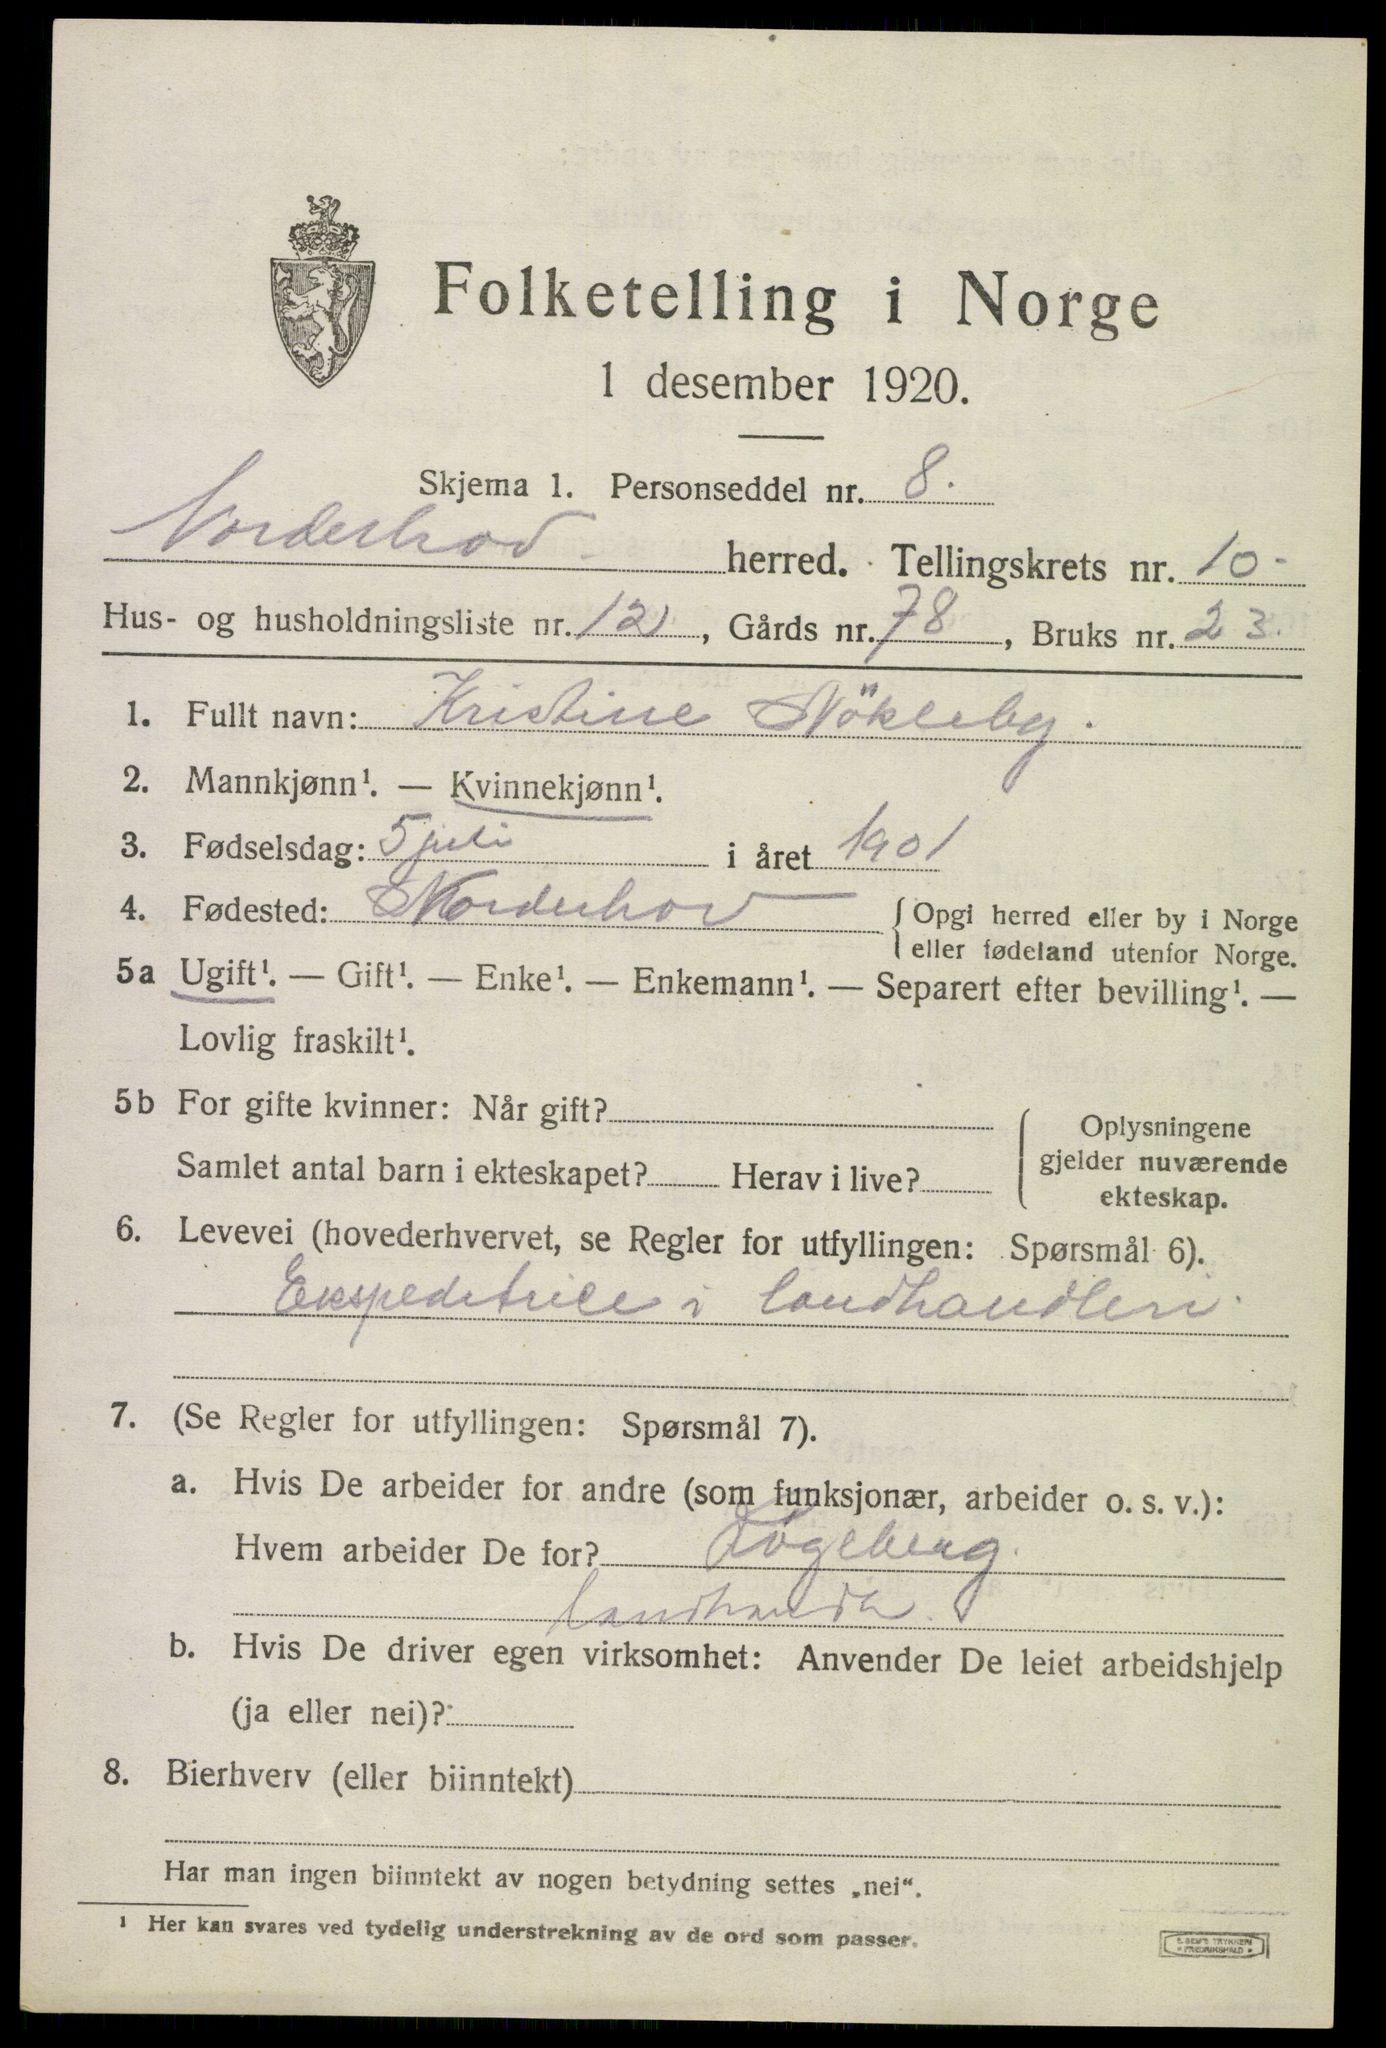 Folketelling i Norge
1 desember 1920.
Skjema 1. Personseddel nr. 8.
Norderhov herred. Tellingskrets nr. 10
Hus- og husholdningsliste nr. 12, Gårds nr. 78, Bruks nr. 23.
1. Fullt navn: Kristine Nökleby.
2. Mannkjønn¹. — Kvinnekjønn¹.
3. Fødselsdag: 5 juli i året 1901
4. Fødested: Norderhov { Opgi herred eller by i Norge
eller fødeland utenfor Norge.
5a Ugift¹. — Gift¹. — Enke¹. — Enkemann¹. — Separert efter bevilling¹. —
Lovlig fraskilt¹.
5b For gifte kvinner: Når gift?
Samlet antal barn i ekteskapet? Herav i live?
{ Oplysningene
gjelder nuværende
ekteskap.
6. Levevei (hovederhvervet, se Regler for utfyllingen: Spørsmål 6).
Ekspeditrice i landhandleri
7. (Se Regler for utfyllingen: Spørsmål 7).
a. Hvis De arbeider for andre (som funksjonær, arbeider o. s. v.):
Hvem arbeider De for?
landhandler
b. Hvis De driver egen virksomhet: Anvender De leiet arbeidshjelp
(ja eller nei)?
8. Bierhverv (eller biinntekt)
Har man ingen biinntekt av nogen betydning settes „nei“.
¹ Her kan svares ved tydelig understrekning av de ord som passer.
E. SEM'S TRYKKERI
FREDRIKSHALD